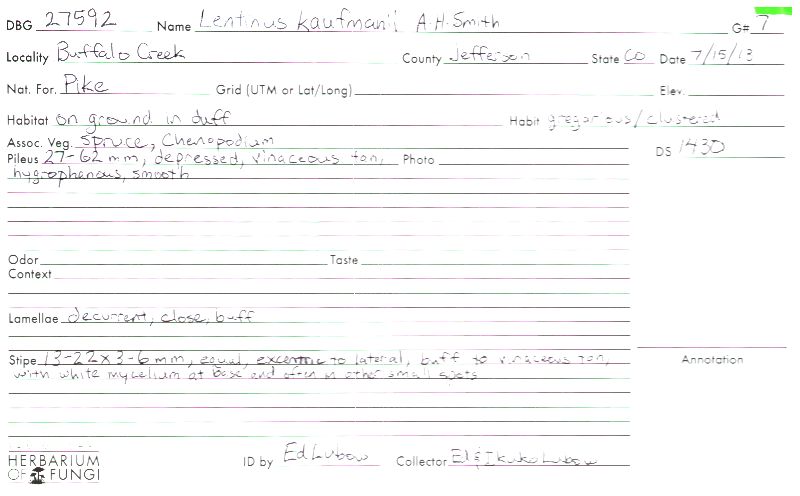 DBG 27592 Name Lentinus kaufmanii A.H. Smith G# 7
Locality Buffalo Creek County Jefferson State CO Date 7/15/13
Nat. For. Pike Grid (UTM or Lat/Long) Elev.
Habitat on ground in duff Habit gregarious/clustered
Assoc. Veg. Spruce, Chenopodium
Pileus 27-62 mm, depressed, vinaceous tan, Photo DS 1430
hygrophanous, smooth
Odor Taste
Context
Lamellae decurrent, close, buff
Stipe 13-22 x 3-6 mm, equal, excentric to lateral, buff to vinaceous tan, Annotation
with white mycelium at base and often in other small spots
HERBARIUM
OF FUNGI ID by Ed Lubow Collector Ed & Ikuko Lubow